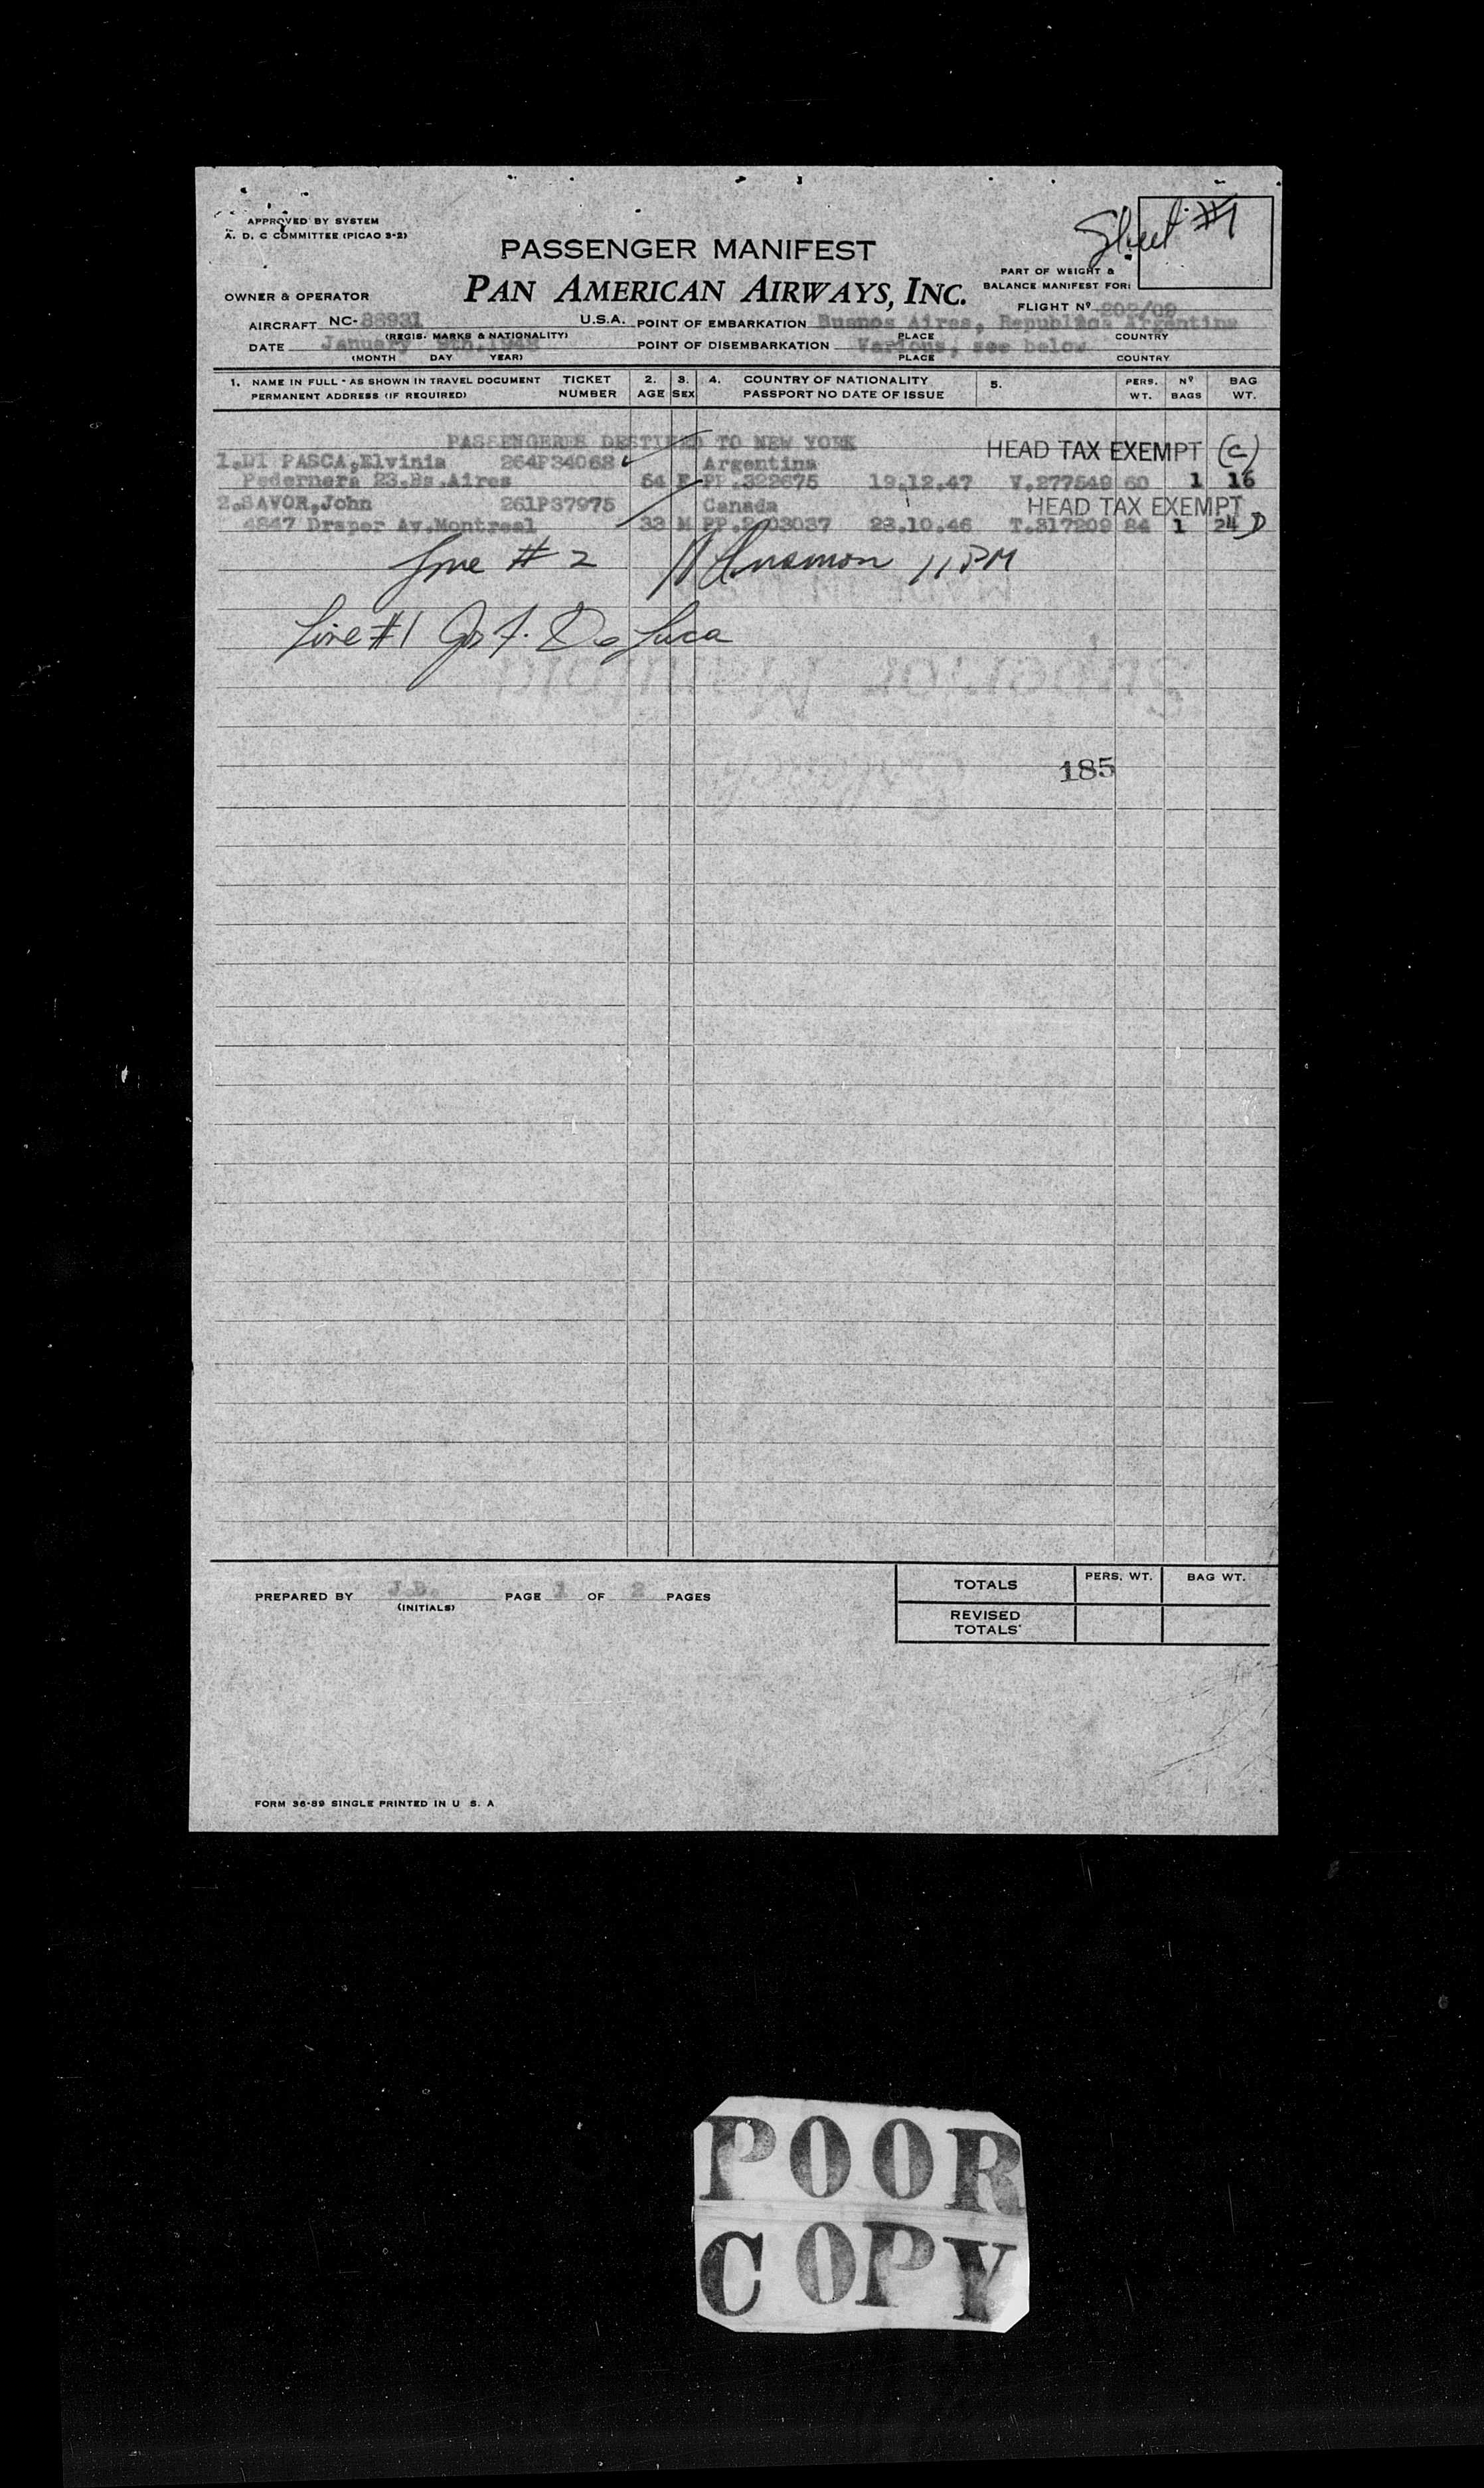 APPROVED BY SYSTEM
A. D. C COMMITTEE (PICAO 3-2)
Sheet #1
PASSENGER MANIFEST
PAN AMERICAN AIRWAYS, INC.
PART OF WEIGHT &
BALANCE MANIFEST FOR:
OWNER & OPERATOR
FLIGHT Nº 202/09
AIRCRAFT NC-88931 U.S.A. POINT OF EMBARKATION Buenos Aires, Republica Argentina
(REGIS. MARKS & NATIONALITY) PLACE COUNTRY
DATE January 9th, 1948 POINT OF DISEMBARKATION Various, see below
(MONTH DAY YEAR) PLACE COUNTRY
1. NAME IN FULL - AS SHOWN IN TRAVEL DOCUMENT TICKET 2. 3. 4. COUNTRY OF NATIONALITY 5. PERS. Nº BAG
PERMANENT ADDRESS (IF REQUIRED) NUMBER AGE SEX PASSPORT NO DATE OF ISSUE WT. BAGS WT.
PASSENGERES DESTINED TO NEW YORK HEAD TAX EXEMPT (C)
1.DI PASCA,Elvinia 264P34068 Argentina
Pedernera 23.Bs.Aires 54 F PP.322675 19.12.47 V.277549 60 1 16
2.SAVOR,John 261P37975 Canada HEAD TAX EXEMPT
4847 Draper Av.Montreal 33 M PP.2-03037 23.10.46 T.317209 84 1 24 D
Line # 2 11 PM
Line #1 Jos F. De Luca
185
PREPARED BY J.B. PAGE 1 OF 2 PAGES
(INITIALS)
TOTALS PERS. WT. BAG WT.
REVISED
TOTALS
FORM 36-89 SINGLE PRINTED IN U S. A
POOR
COPY